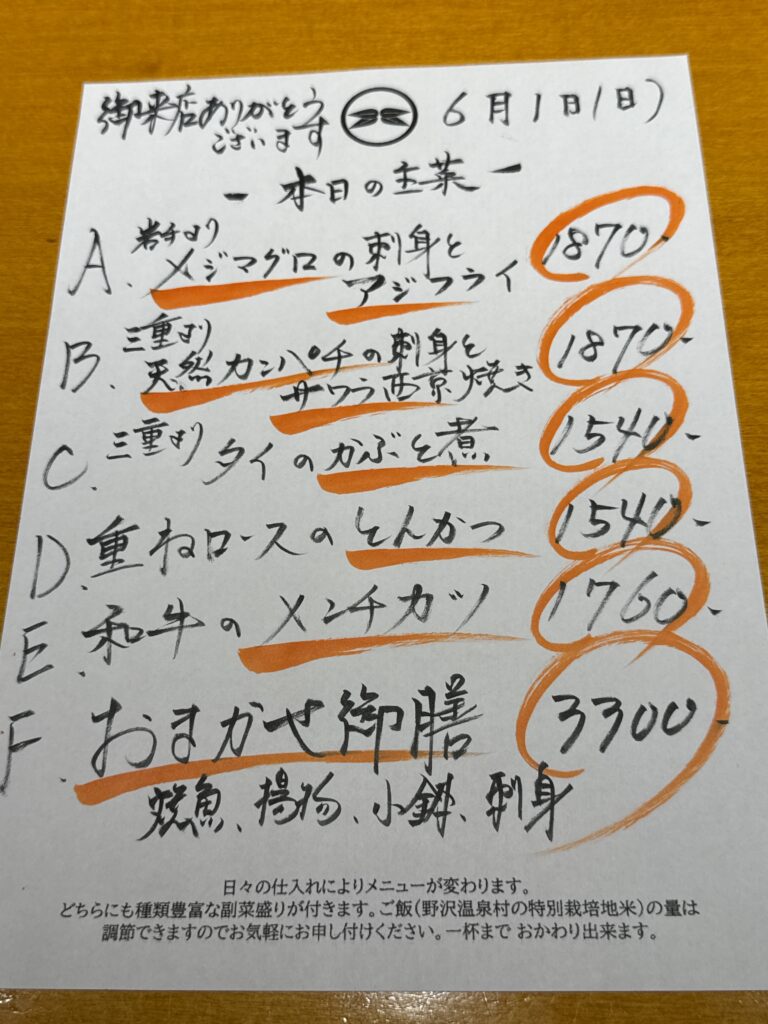 御来店ありがとう
ございます
6月1日(日)
- 本日の主菜 -
A. 岩手より
メジマグロの刺身と
アジフライ 1870-
B. 三重より
天然カンパチの刺身と
サワラ西京焼き 1870-
C. 三重より タイのかぶと煮 1540-
D. 重ねロースのとんかつ 1540-
E. 和牛のメンチカツ 1760-
F. おまかせ御膳 3300-
焼魚、揚物、小鉢、刺身
日々の仕入れによりメニューが変わります。
どちらにも種類豊富な副菜盛りが付きます。ご飯(野沢温泉村の特別栽培地米)の量は
調節できますのでお気軽にお申し付けください。一杯まで おかわり出来ます。